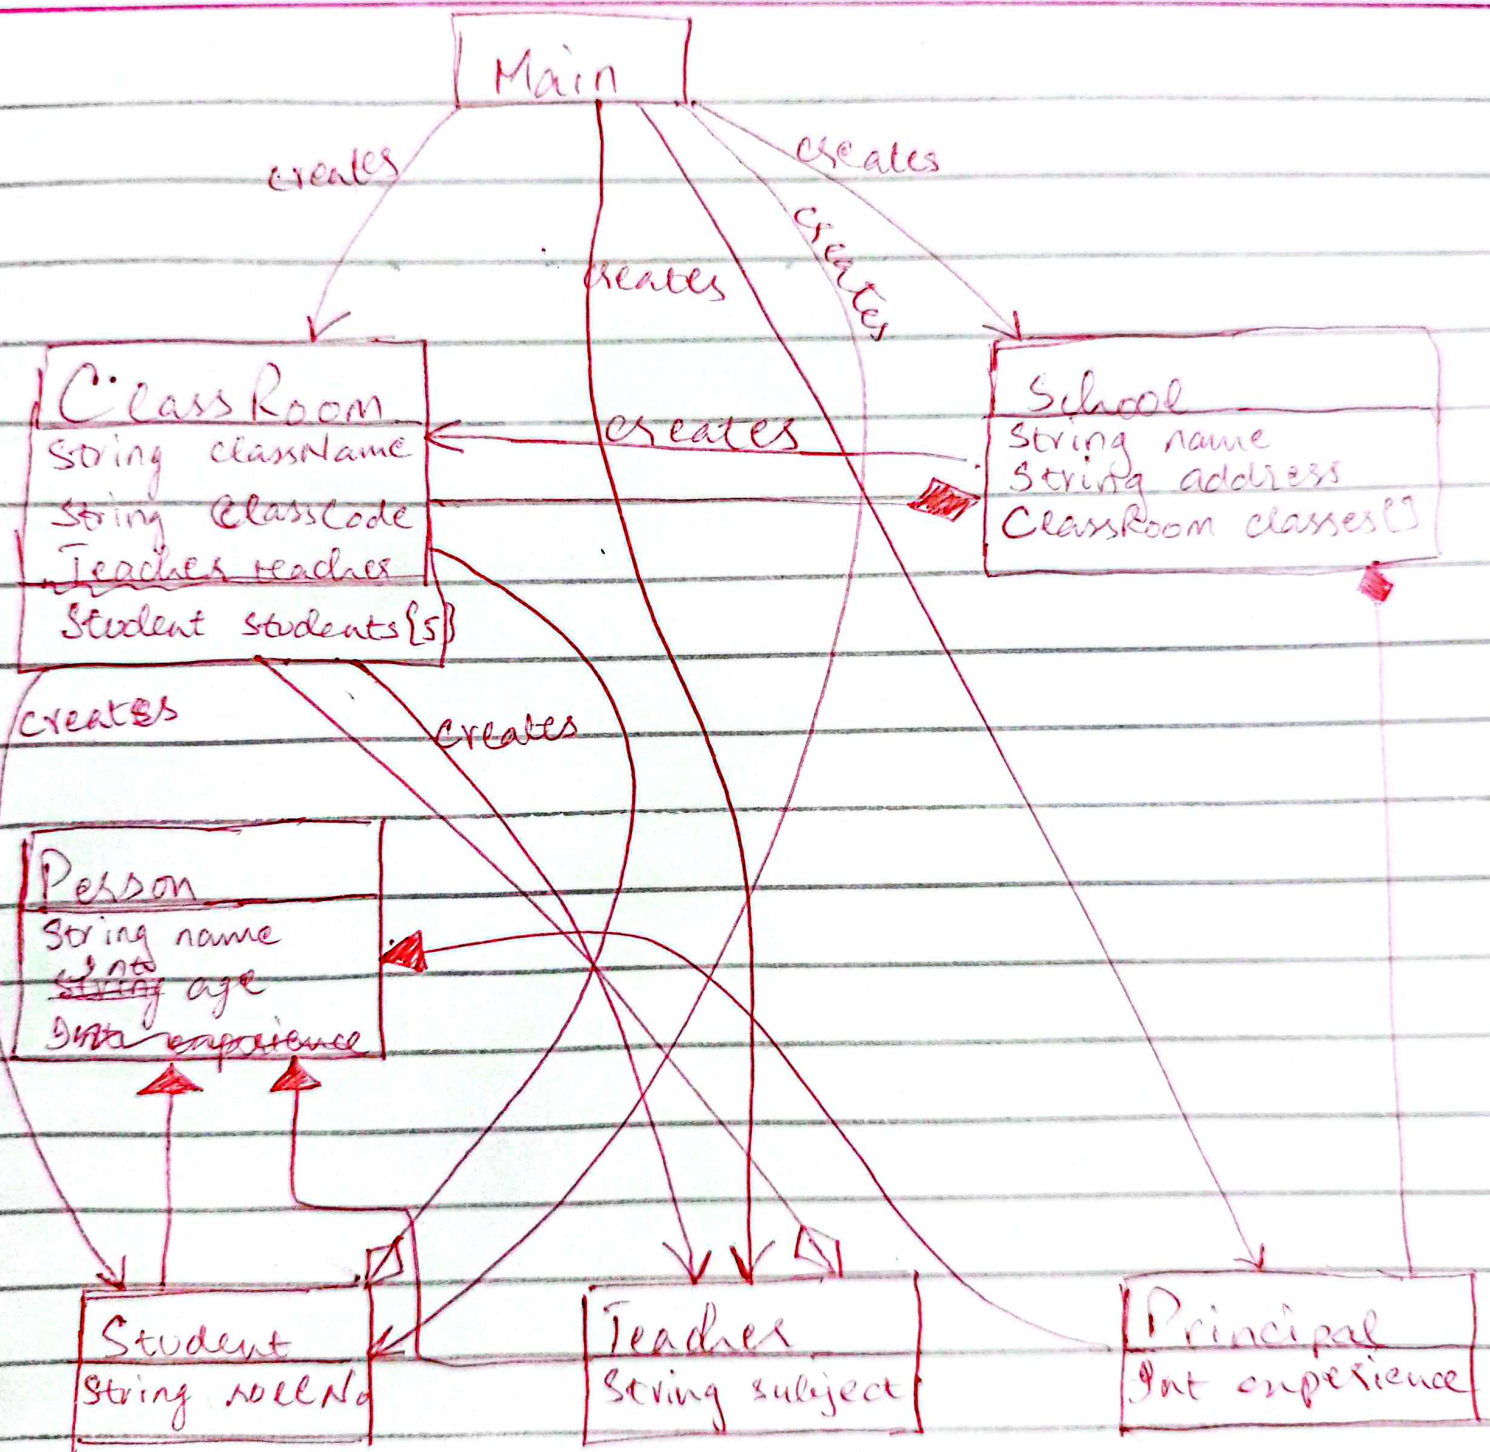 Main
creates
creates
creates
creates
ClassRoom
String className
String ClassCode
Teacher teacher
Student students[5]
creates
School
String name
String address
ClassRoom classes[]
creates
creates
Person
String name
int
String age
Int experience
Student
String rollNo
Teacher
String subject
Principal
Int experience